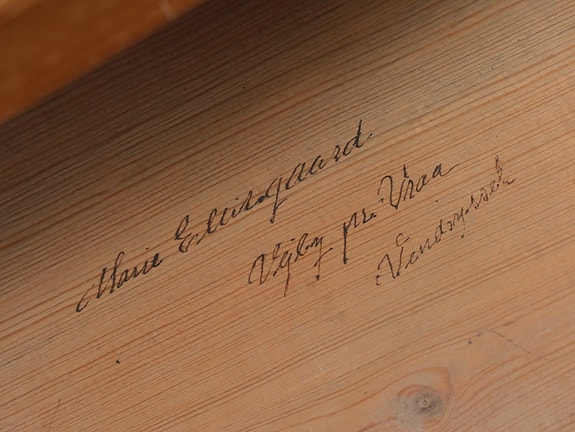 Marie Ellitsgaard
Vejby pr. Vraa
Vendsyssel